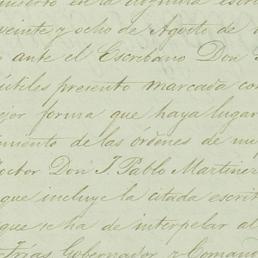 en la segunda escri
veinte y ocho de Agosto de
o ante el Escribano Don
útiles presento marcada con
ejor forma que haya lugar
imiento de las órdenes de mi
Doctor Don J. Pablo Martinez
que incluye la citada escrit
que se ha de interpelar al
Frias Gobernador y Coman